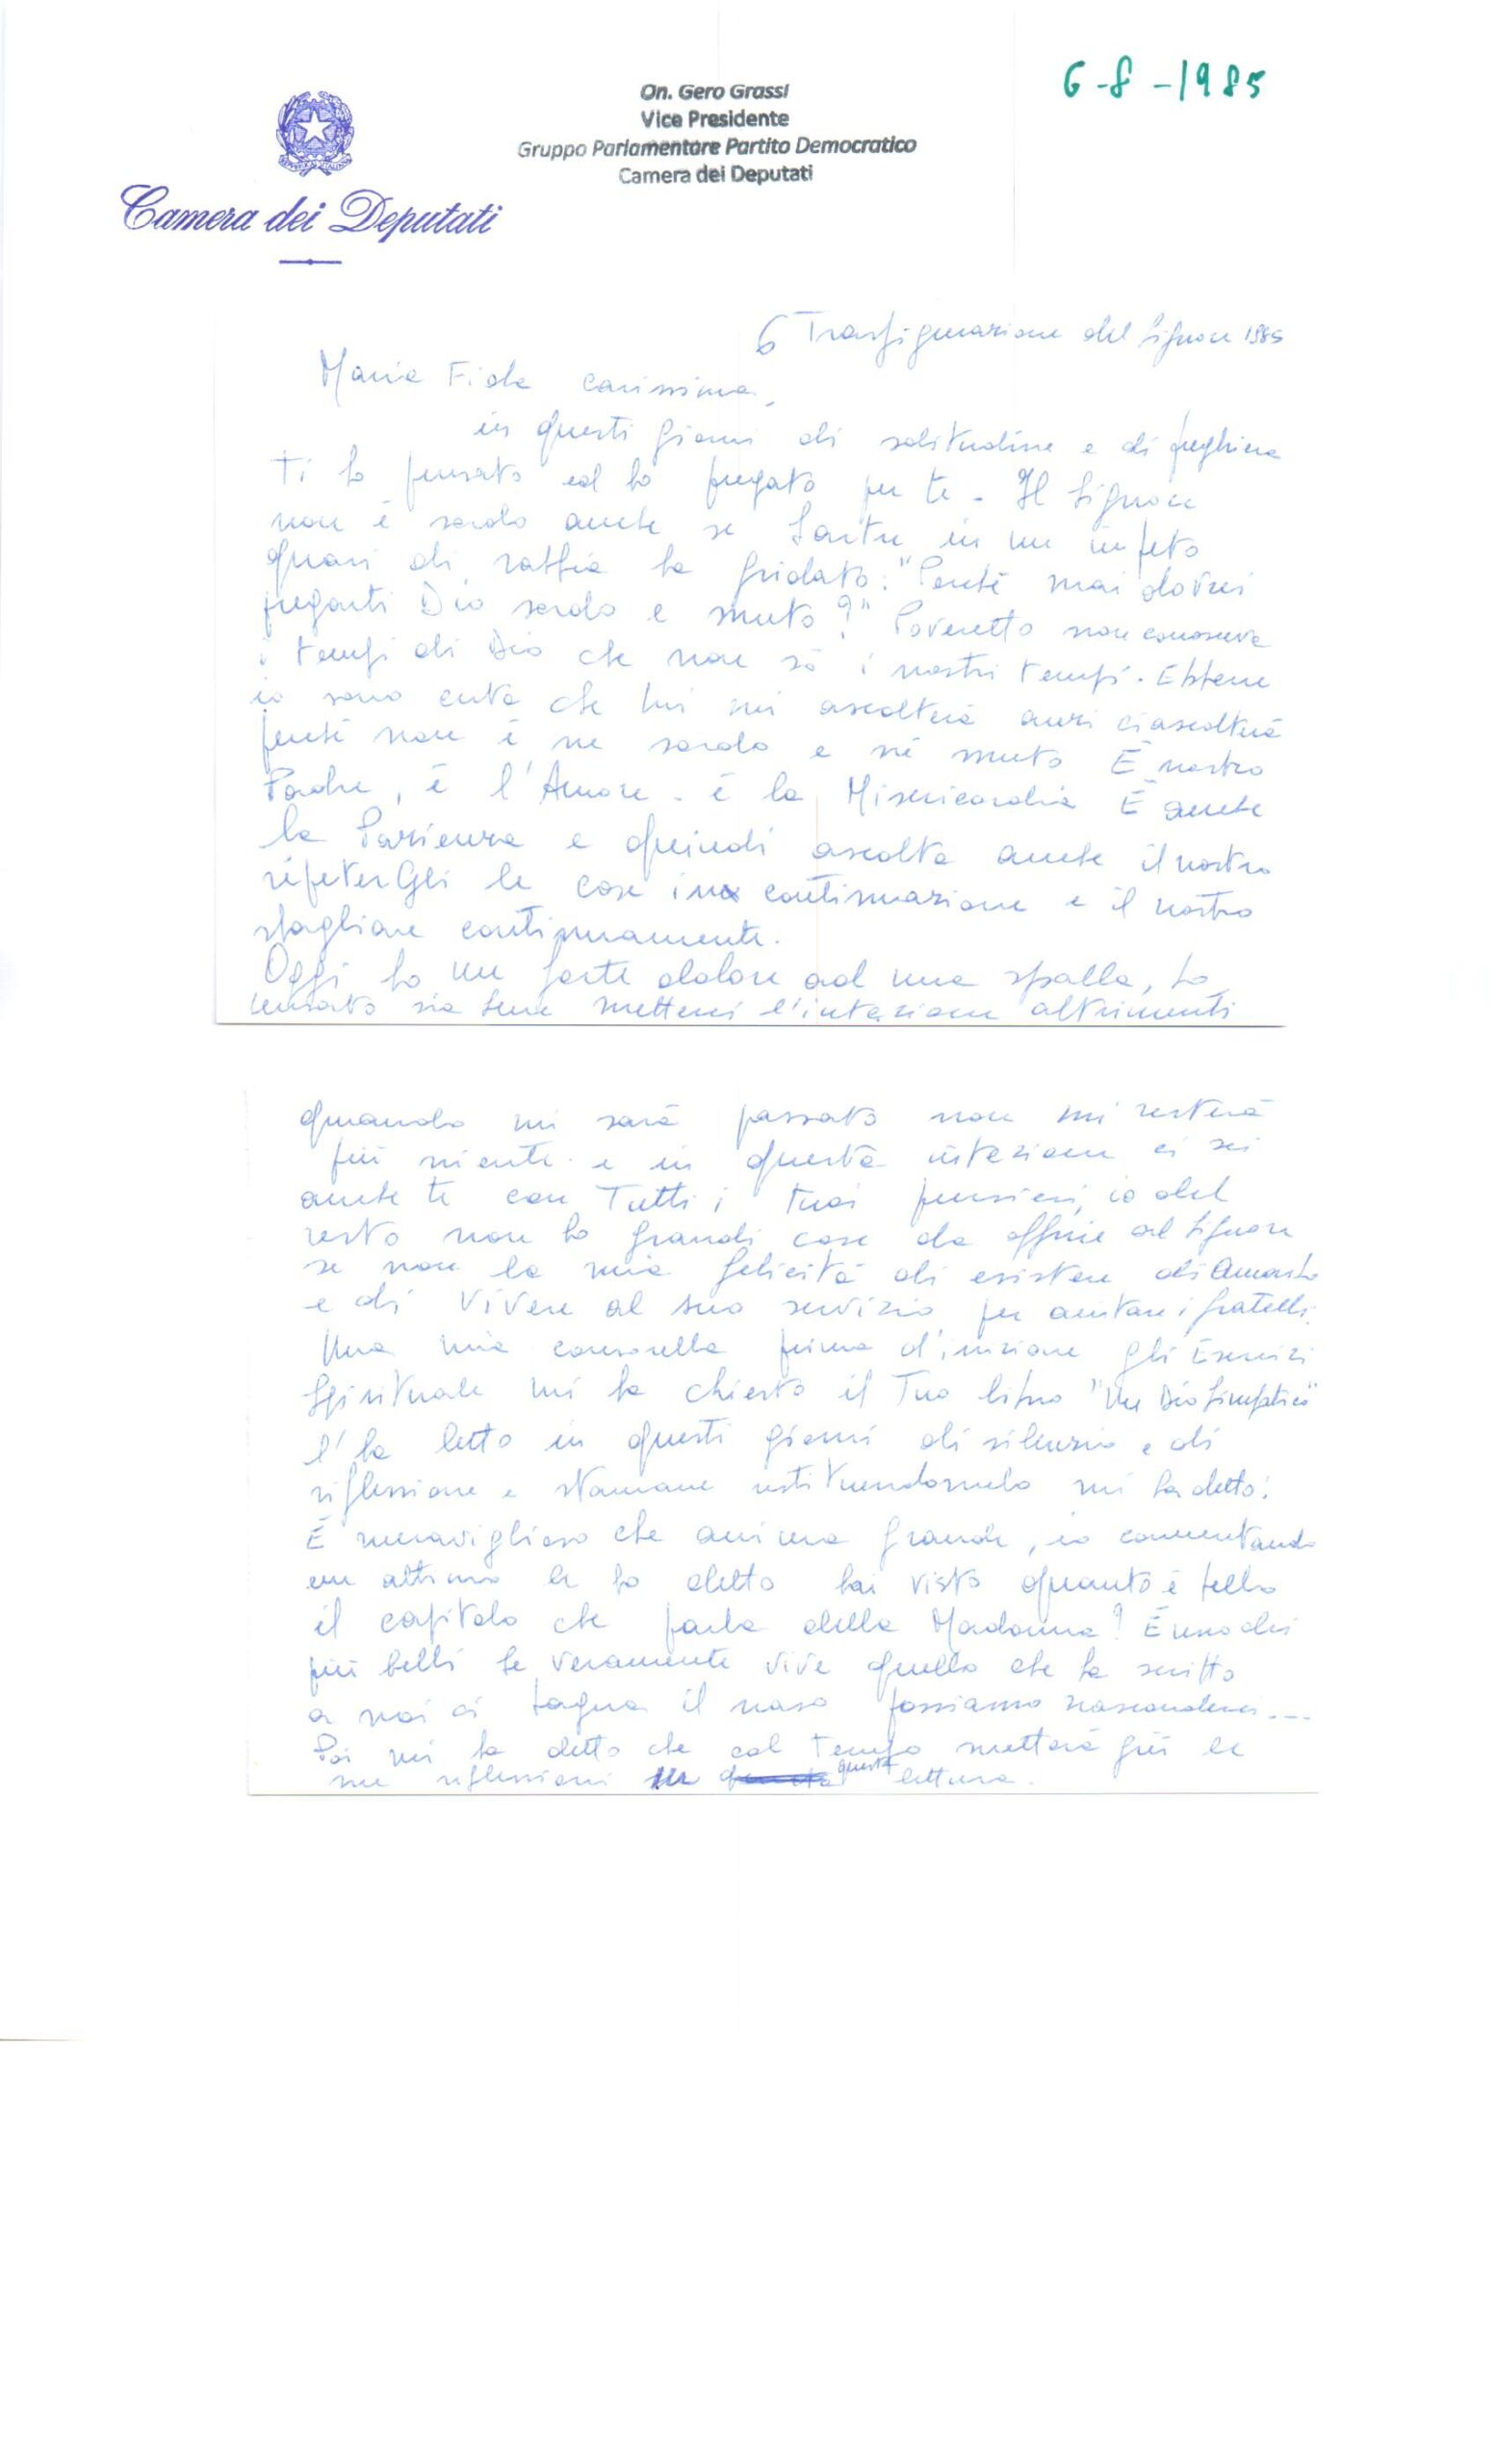 6-8-1985
On. Gero Grassi
Vice Presidente
Gruppo Parlamentare Partito Democratico
Camera dei Deputati
Camera dei Deputati
6 Trasfigurazione del Signore 1985
Maria Fida carissima,
in questi giorni di solitudine e di preghiera
ti ho pensato ed ho pregato per te - Il Signore
non è sordo anche se Sartre in un impeto
quasi di rabbia ha gridato: "Perché mai dovrei
pregarti Dio sordo e muto?" Poveretto non conosceva
i tempi di Dio che non sò i nostri tempi. Ebbene
io sono certa che lui mi ascolterà anzi ci ascolterà
perché non è ne sordo e né muto È nostro
Padre, è l'Amore - è la Misericordia È anche
la Pazienza e quindi ascolta anche il nostro
ripeterGli le cose in continuazione e il nostro
sbagliare continuamente.
Oggi ho un forte dolore ad una spalla, ho
pensato sia bene metterci l'intezione altrimenti
quando mi sarà passato non mi resterà
più niente e in questa intezione ci sei
anche te con Tutti i tuoi pensieri, io del
resto non ho grandi cose da offrire al Signore
se non la mia felicità di esistere di Amarlo
e di vivere al suo servizio per aiutare i fratelli.
Una mia consorella prima d'iniziare gli Esercizi
Spirituale mi ha chiesto il Tuo libro "Un Dio Simpatico"
l'ha letto in questi giorni di silenzio e di
riflessione e stamane restituendomelo mi ha detto:
È meraviglioso che anima grande, io commentando
un attimo le ho detto hai visto quanto è bello
il capitolo che parla della Madonna? È uno dei
più belli se veramente vive quello che ha scritto
a noi ci bagna il naso possiamo nasconderci...
Poi mi ha detto che col tempo metterà giù le
sue riflessioni su questa lettura.